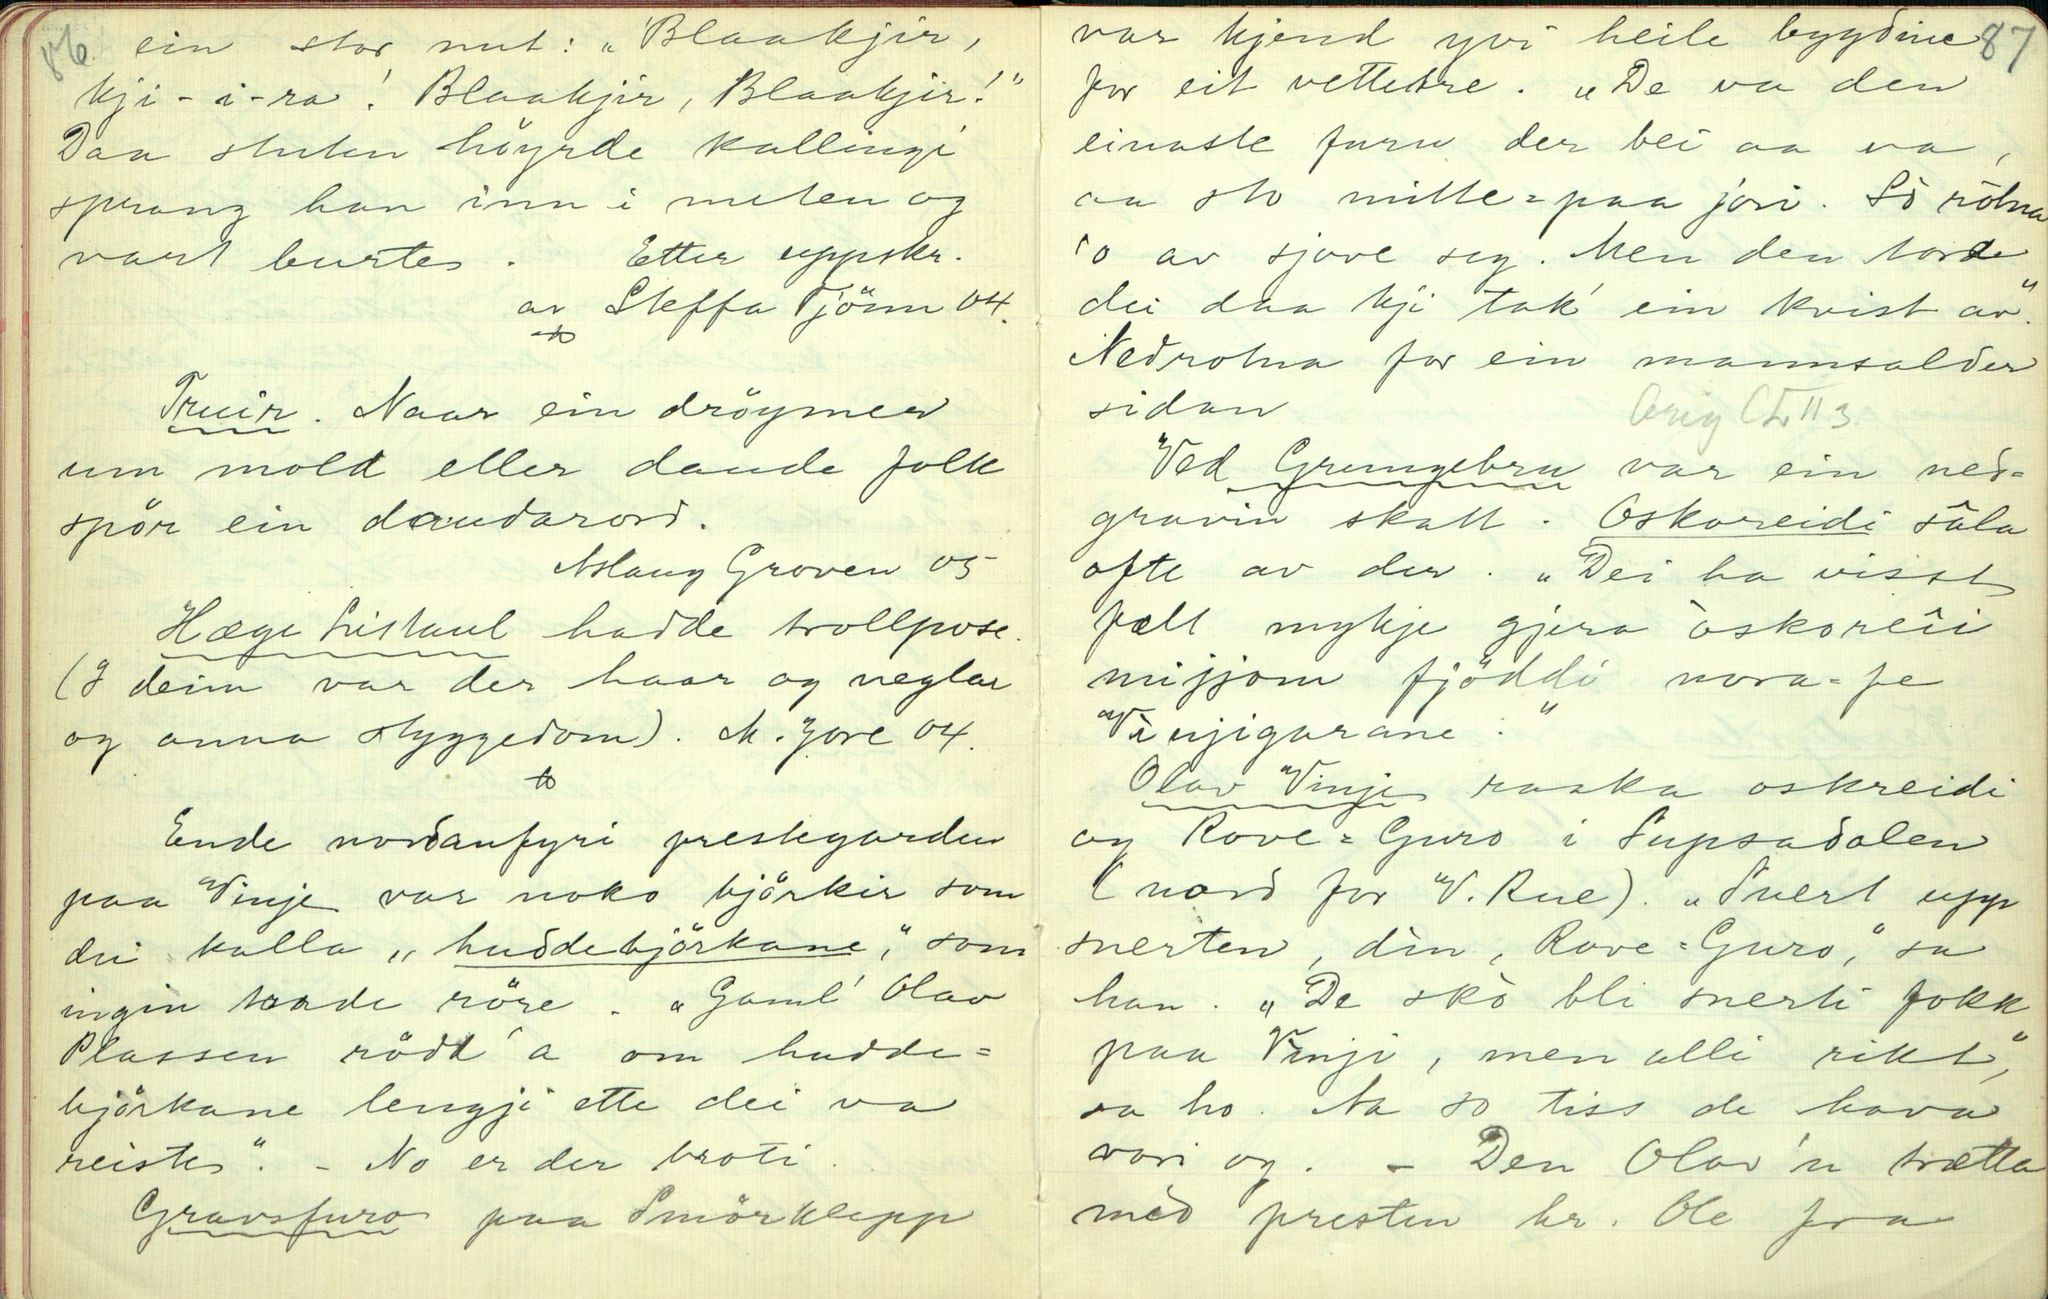 86
ein stor nut: „Blaakjir,
kji-i-ra! Blaakjir, Blaakjir!"
Daa stuten höyrde kallingi
sprang han inn i nuten og
vart burte. Etter uppskr.
av Steffa Tjönn 04.
Truir. Naar ein dröymer
um mold eller daude folk
spör ein daudarord.
Aslaug Groven 05
Hæge Listaul hadde trollpose.
(I deim var der haar og neglar
og anna styggedom). M. Jore 04.
Ende nordanfyri prestegarden
paa Vinje var noko björkir som
dei kalla „huddebjörkane", som
ingin torde röre. „Gaml' Olav
Plassen rödd' a om hudde=
björkane lengji ette dei va
reiste". – No er der broti.
Gravsfuro paa Smörklepp
87
var kjend yvi heile bygdine
for eit vettetre. „De va den
einaste furu der bei aa va,
aa sto mitte=paa jori. So rotna
'o av sjove seg. Men den torde
dei daa kji tak' ein kvist av".
Nedrotna for ein mannsalder
sidan
Orig CL II 3
Ved Grungebru var ein ned=
gravin skatt. Oskoreidi såla
ofte av der. „Dei ha visst
fælt mykje gjera òskoreii
mijjom fjöddi nora=fe
Vinjigarane."
Olav Vinje raaka oskreidi
og Rove=Guro i Supsadalen
(nord for V. Rue). „Snert upp
snerten, din, Rove=Guro," sa
han. „De skò bli snerti fokk
paa Vinji, men alli rikt",
sa ho. Aa so tiss de hava
vori og. – Den Olav'n trætta
med presten hr. Ole fra